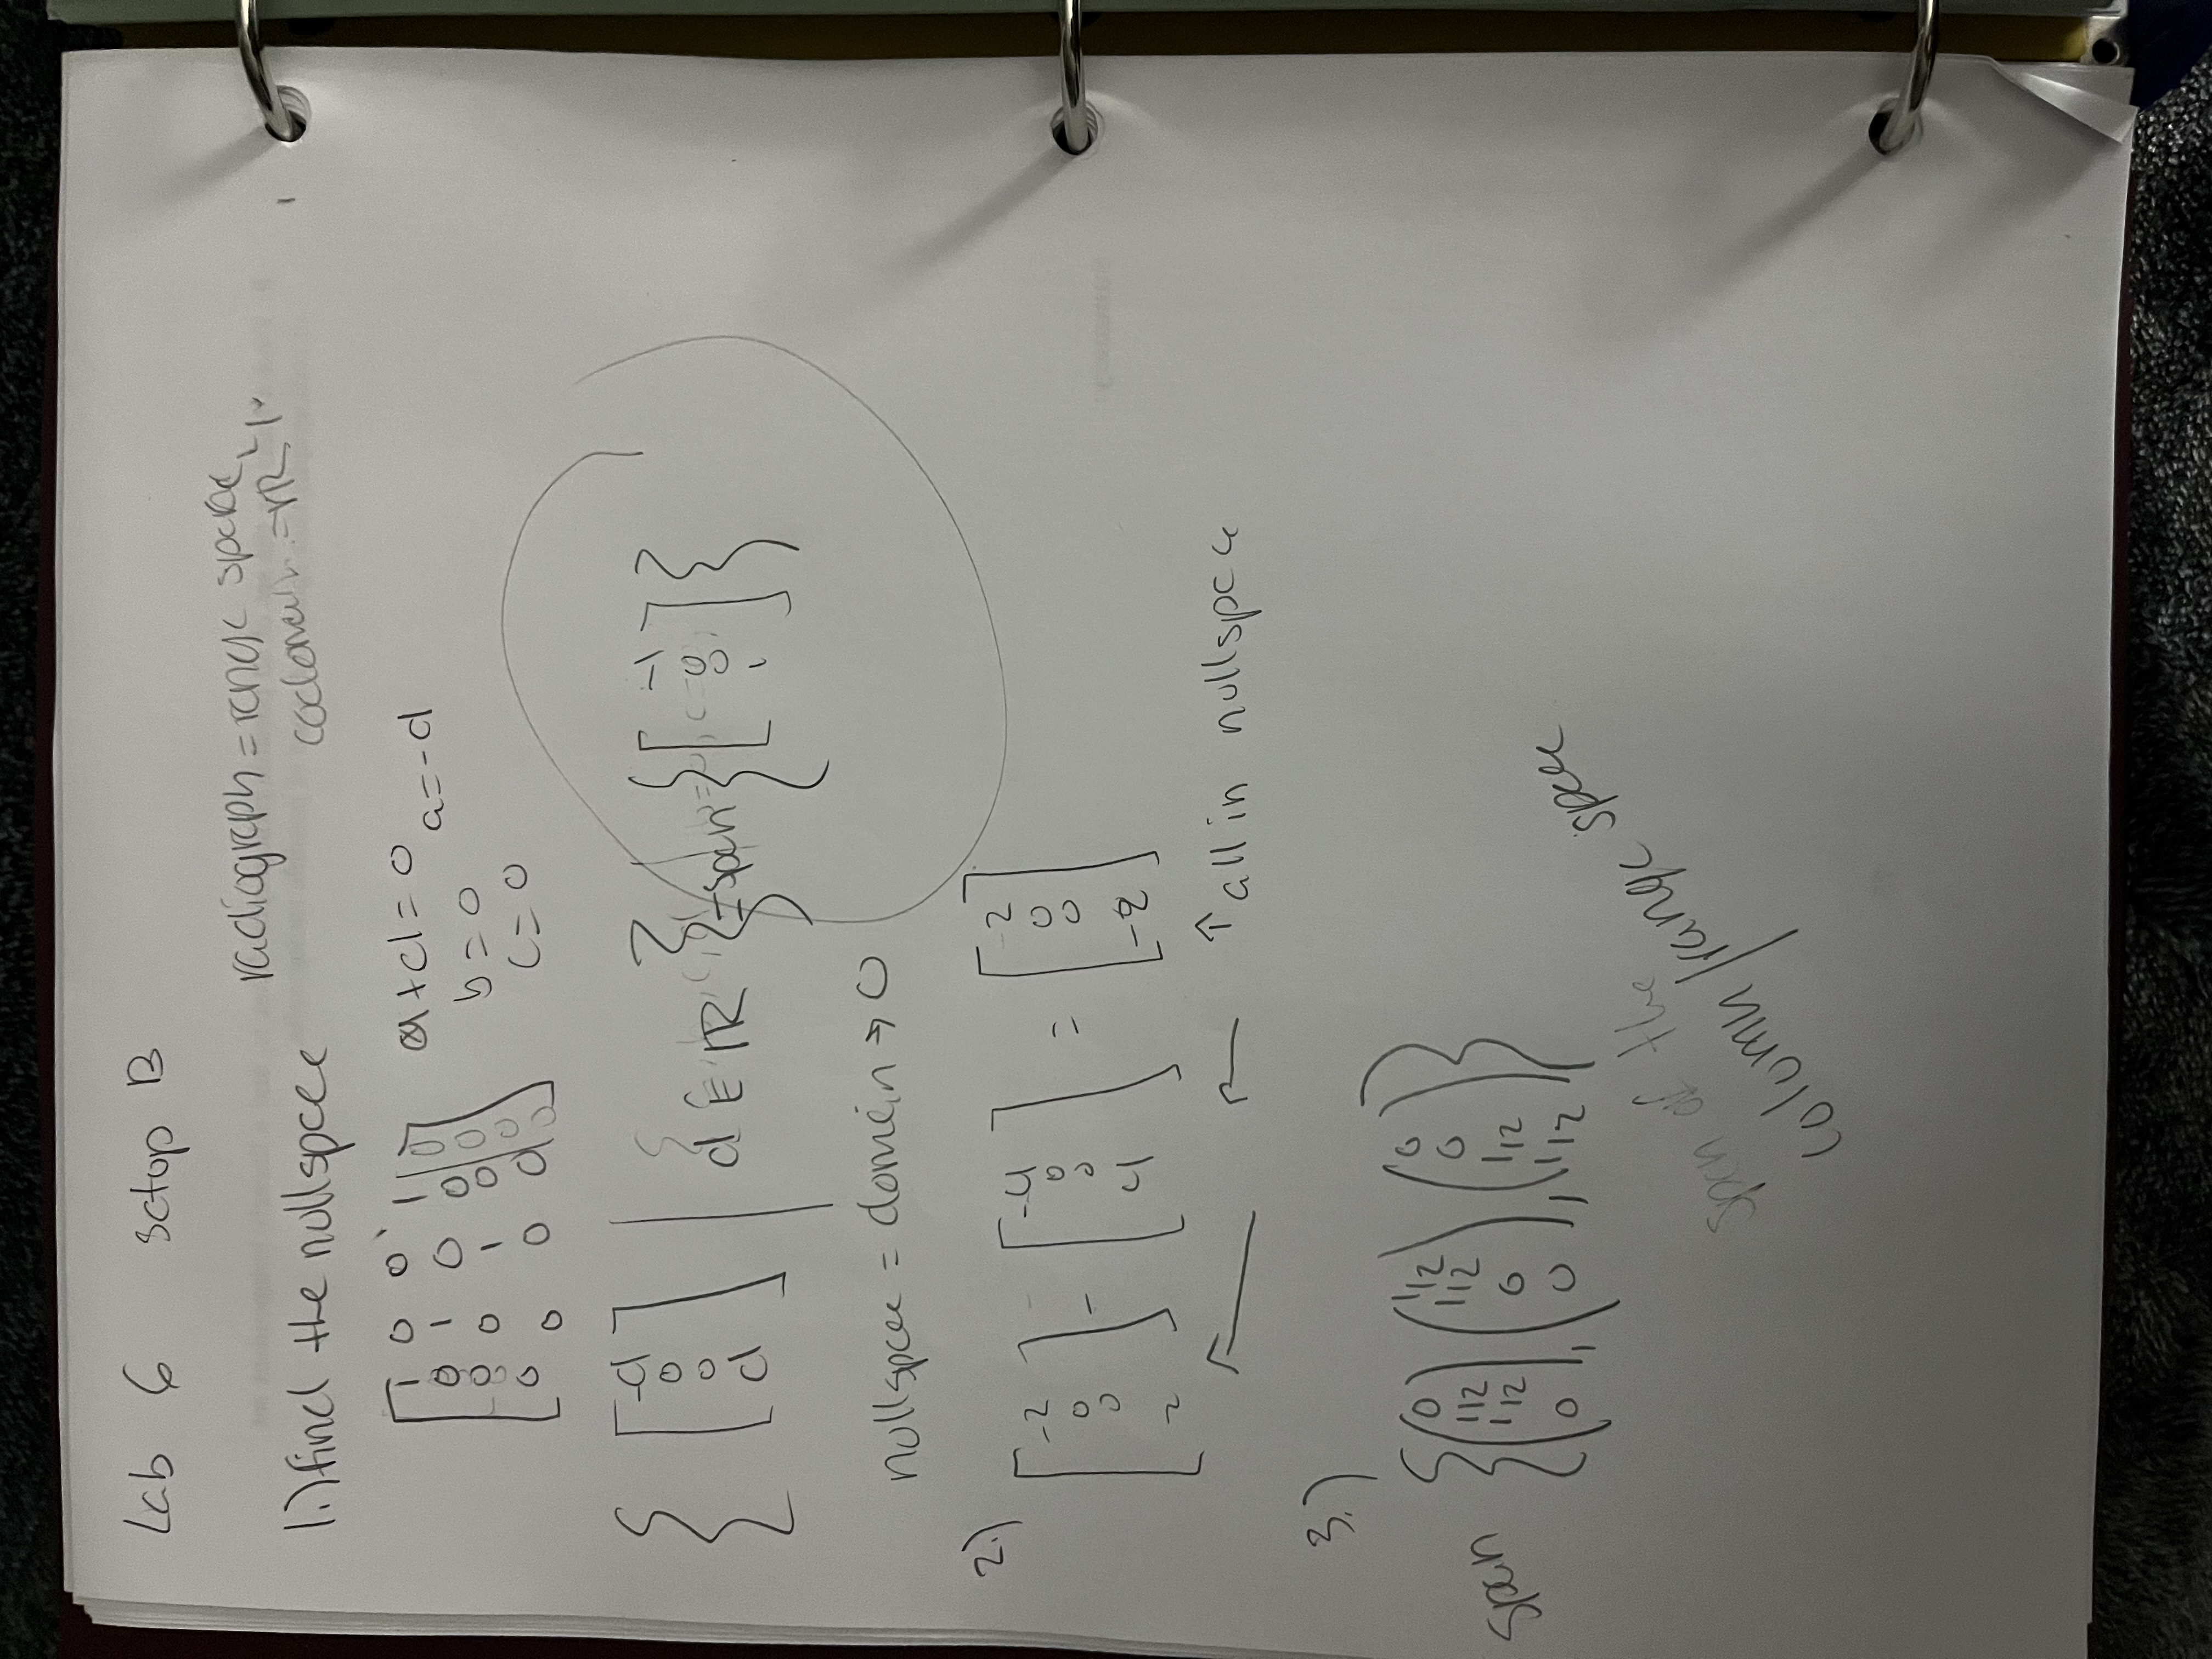 Lab 6 setup B
radiograph = range space
codomain = ℝ⁴
1.) find the nullspace
[1 0 0 1 | 0]
[0 1 0 0 | 0]
[0 0 1 0 | 0]
[0 0 0 0 | 0]
a + d = 0
a = -d
b = 0
c = 0
{ [-d 0 0 d] | d ∈ ℝ } = span { [-1 0 0 1] }
nullspace = domain → 0
2.)
[-2 0 0 2] - [-4 0 0 4] = [2 0 0 -2]
↑ all in nullspace
3.)
span { (0 1/2 1/2 0), (1/2 1/2 0 0), (0 0 1/2 1/2) }
span of the
column/range space